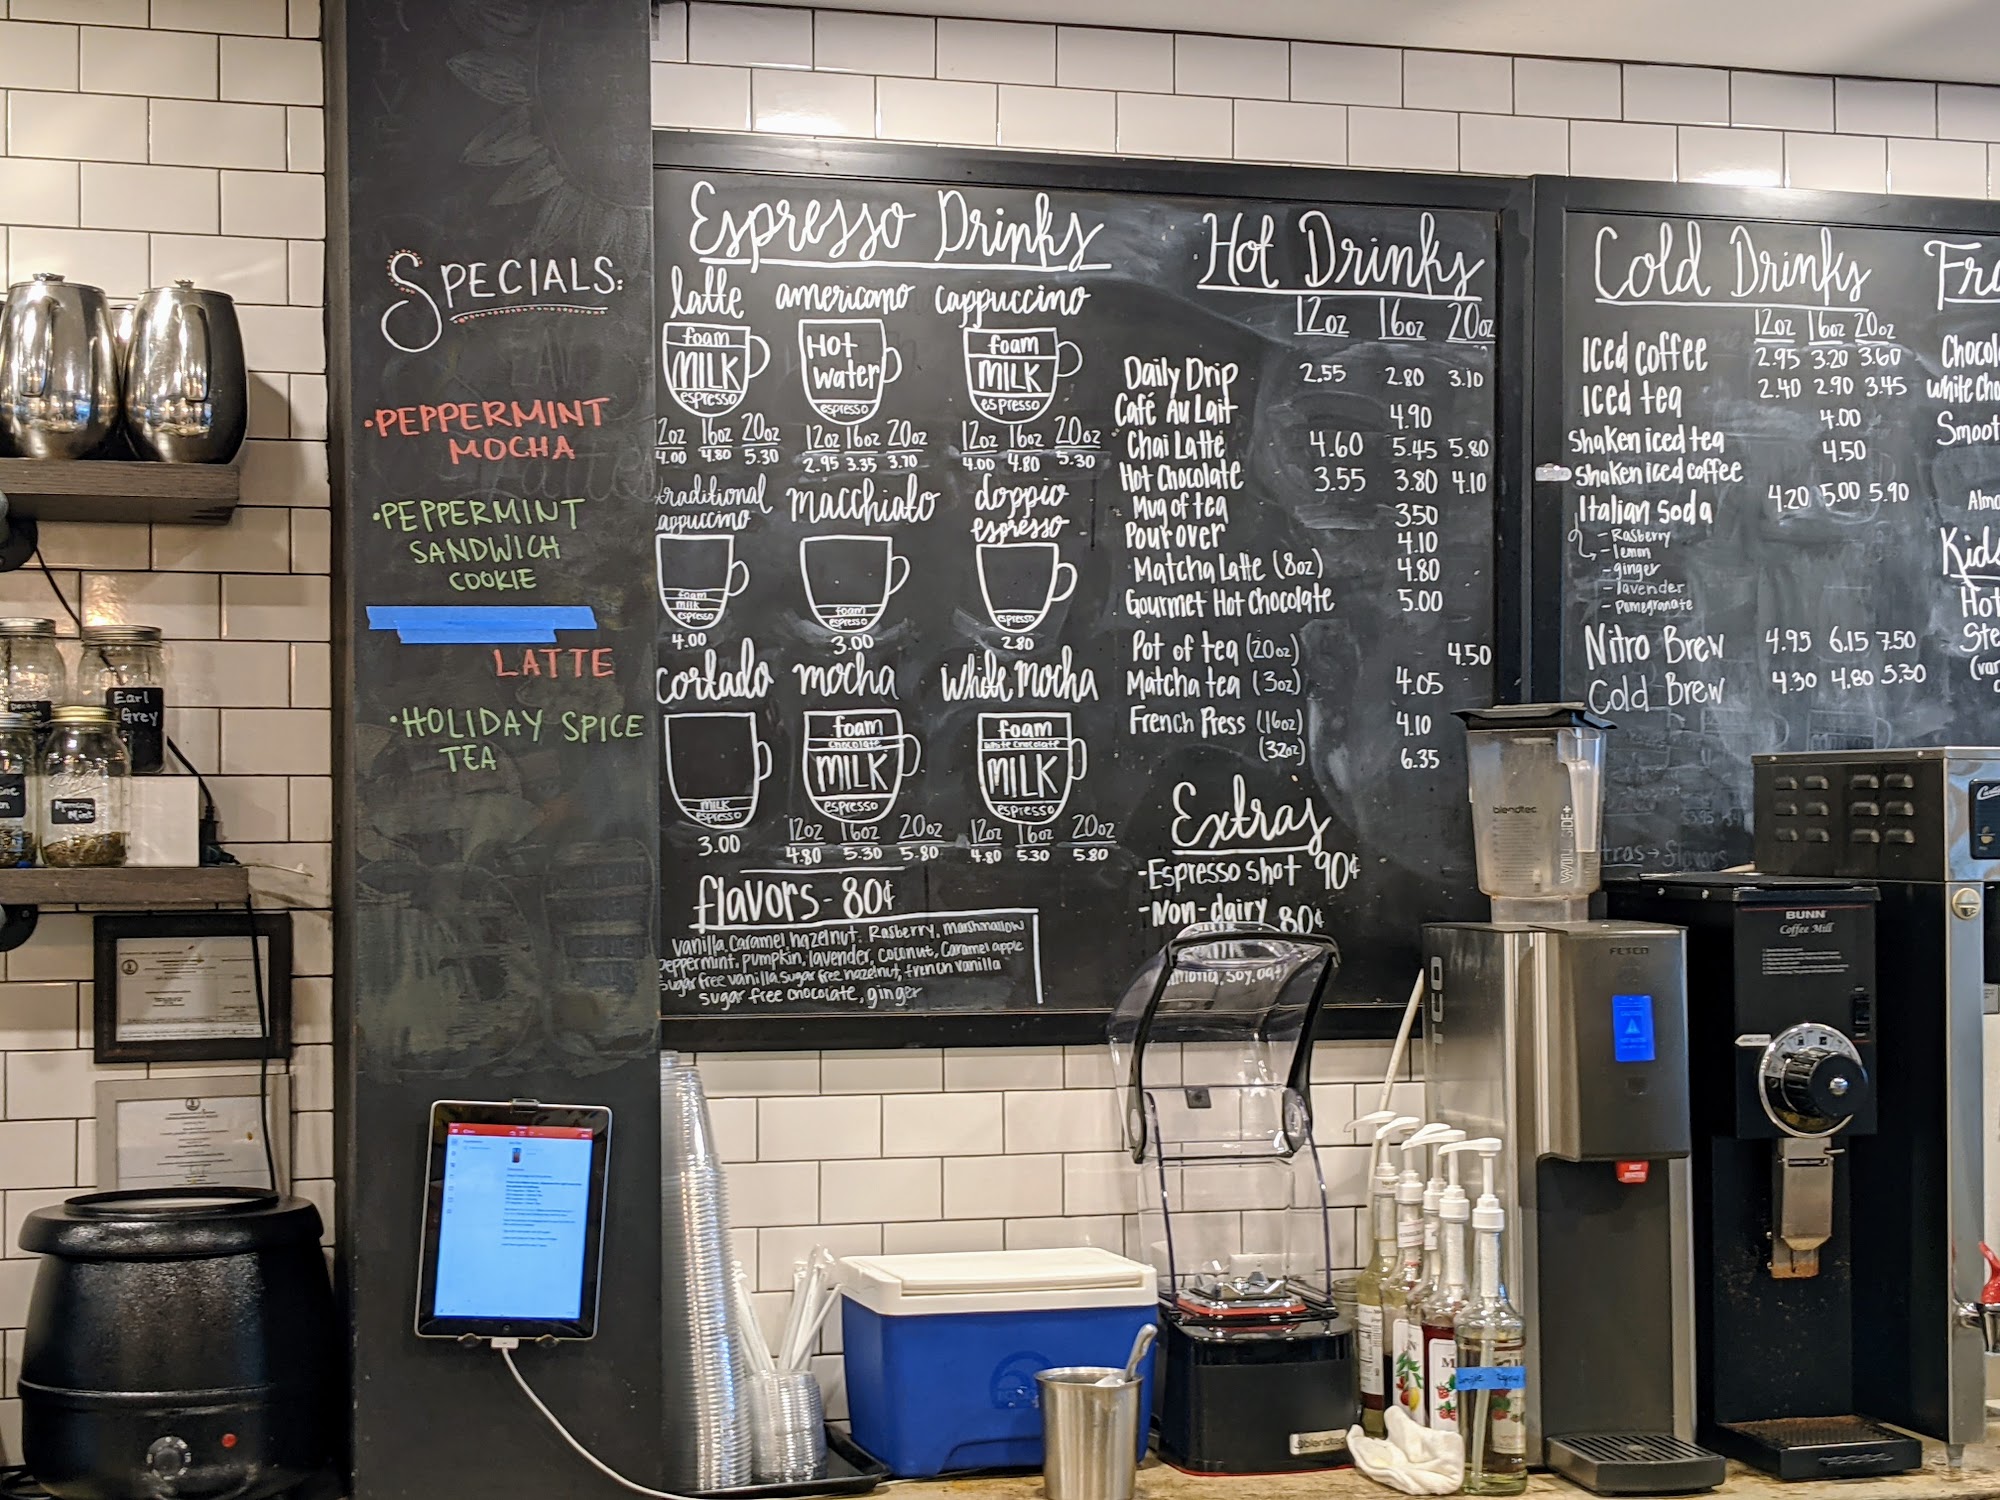 SPECIALS:
• PEPPERMINT
MOCHA
• PEPPERMINT
SANDWICH
COOKIE
LATTE
• HOLIDAY SPICE
TEA
Espresso Drinks
latte americano cappuccino
foam
MILK
espresso
Hot
water
espresso
foam
MILK
espresso
12oz 16oz 20oz
4.00 4.80 5.30
12oz 16oz 20oz
2.95 3.35 3.70
12oz 16oz 20oz
4.00 4.80 5.30
traditional
cappuccino
macchiato
doppio
espresso
foam
milk
espresso
4.00
foam
espresso
3.00
espresso
2.80
cortado mocha white mocha
MILK
espresso
3.00
foam
chocolate
MILK
espresso
12oz 16oz 20oz
4.80 5.30 5.80
foam
white chocolate
MILK
espresso
12oz 16oz 20oz
4.80 5.30 5.80
flavors - 80¢
vanilla, caramel, hazelnut, Rasberry, marshmallow
peppermint, pumpkin, lavender, coconut, caramel apple
sugar free vanilla, sugar free hazelnut, french vanilla
sugar free chocolate, ginger
Hot Drinks
12oz 16oz 20oz
Daily Drip 2.55 2.80 3.10
Café Au Lait 4.90
Chai Latte 4.60 5.45 5.80
Hot Chocolate 3.55 3.80 4.10
Mug of tea 3.50
Pour over 4.10
Matcha Latte (8oz) 4.80
Gourmet Hot Chocolate 5.00
Pot of tea (20oz) 4.50
Matcha tea (3oz) 4.05
French Press (16oz) 4.10
(32oz) 6.35
Extras
- Espresso shot 90¢
- Non-dairy 80¢
almond, soy, oat
Cold Drinks
12oz 16oz 20oz
Iced coffee 2.95 3.20 3.60
Iced tea 2.40 2.90 3.45
Shaken iced tea 4.00
Shaken iced coffee 4.50
Italian Soda 4.20 5.00 5.90
- Rasberry
- lemon
- ginger
- lavender
- Pomegranate
Nitro Brew 4.95 6.15 7.50
Cold Brew 4.30 4.80 5.30
Fro
Chocol
White Cho
Smoot
Almo
Kids
Hot
Ste
(van
Earl
Grey
Mint
blendtec
WILDSIDE+
FETCO
TCO
HOT
WATER
BUNN
Coffee Mill
blendtec